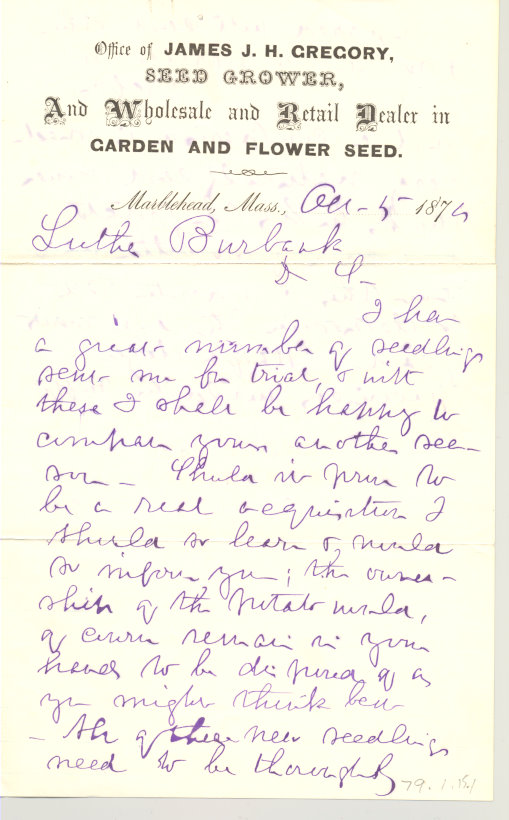 Office of JAMES J. H. GREGORY,
SEED GROWER,
And Wholesale and Retail Dealer in
GARDEN AND FLOWER SEED.
Marblehead, Mass., Oct - 5 187
Luther Burbank
D S -
I have
a great number of seedlings
sent me for trial, & with
these I shall be happy to
compare yours another sea-
son - Should it prove to
be a real acquisition I
should so learn & would
so inform you; the owner-
ship of the potato would,
of course remain in your
hands to be disposed of as
you might think best
- All of these new seedlings
need to be thoroughly
79.1.151